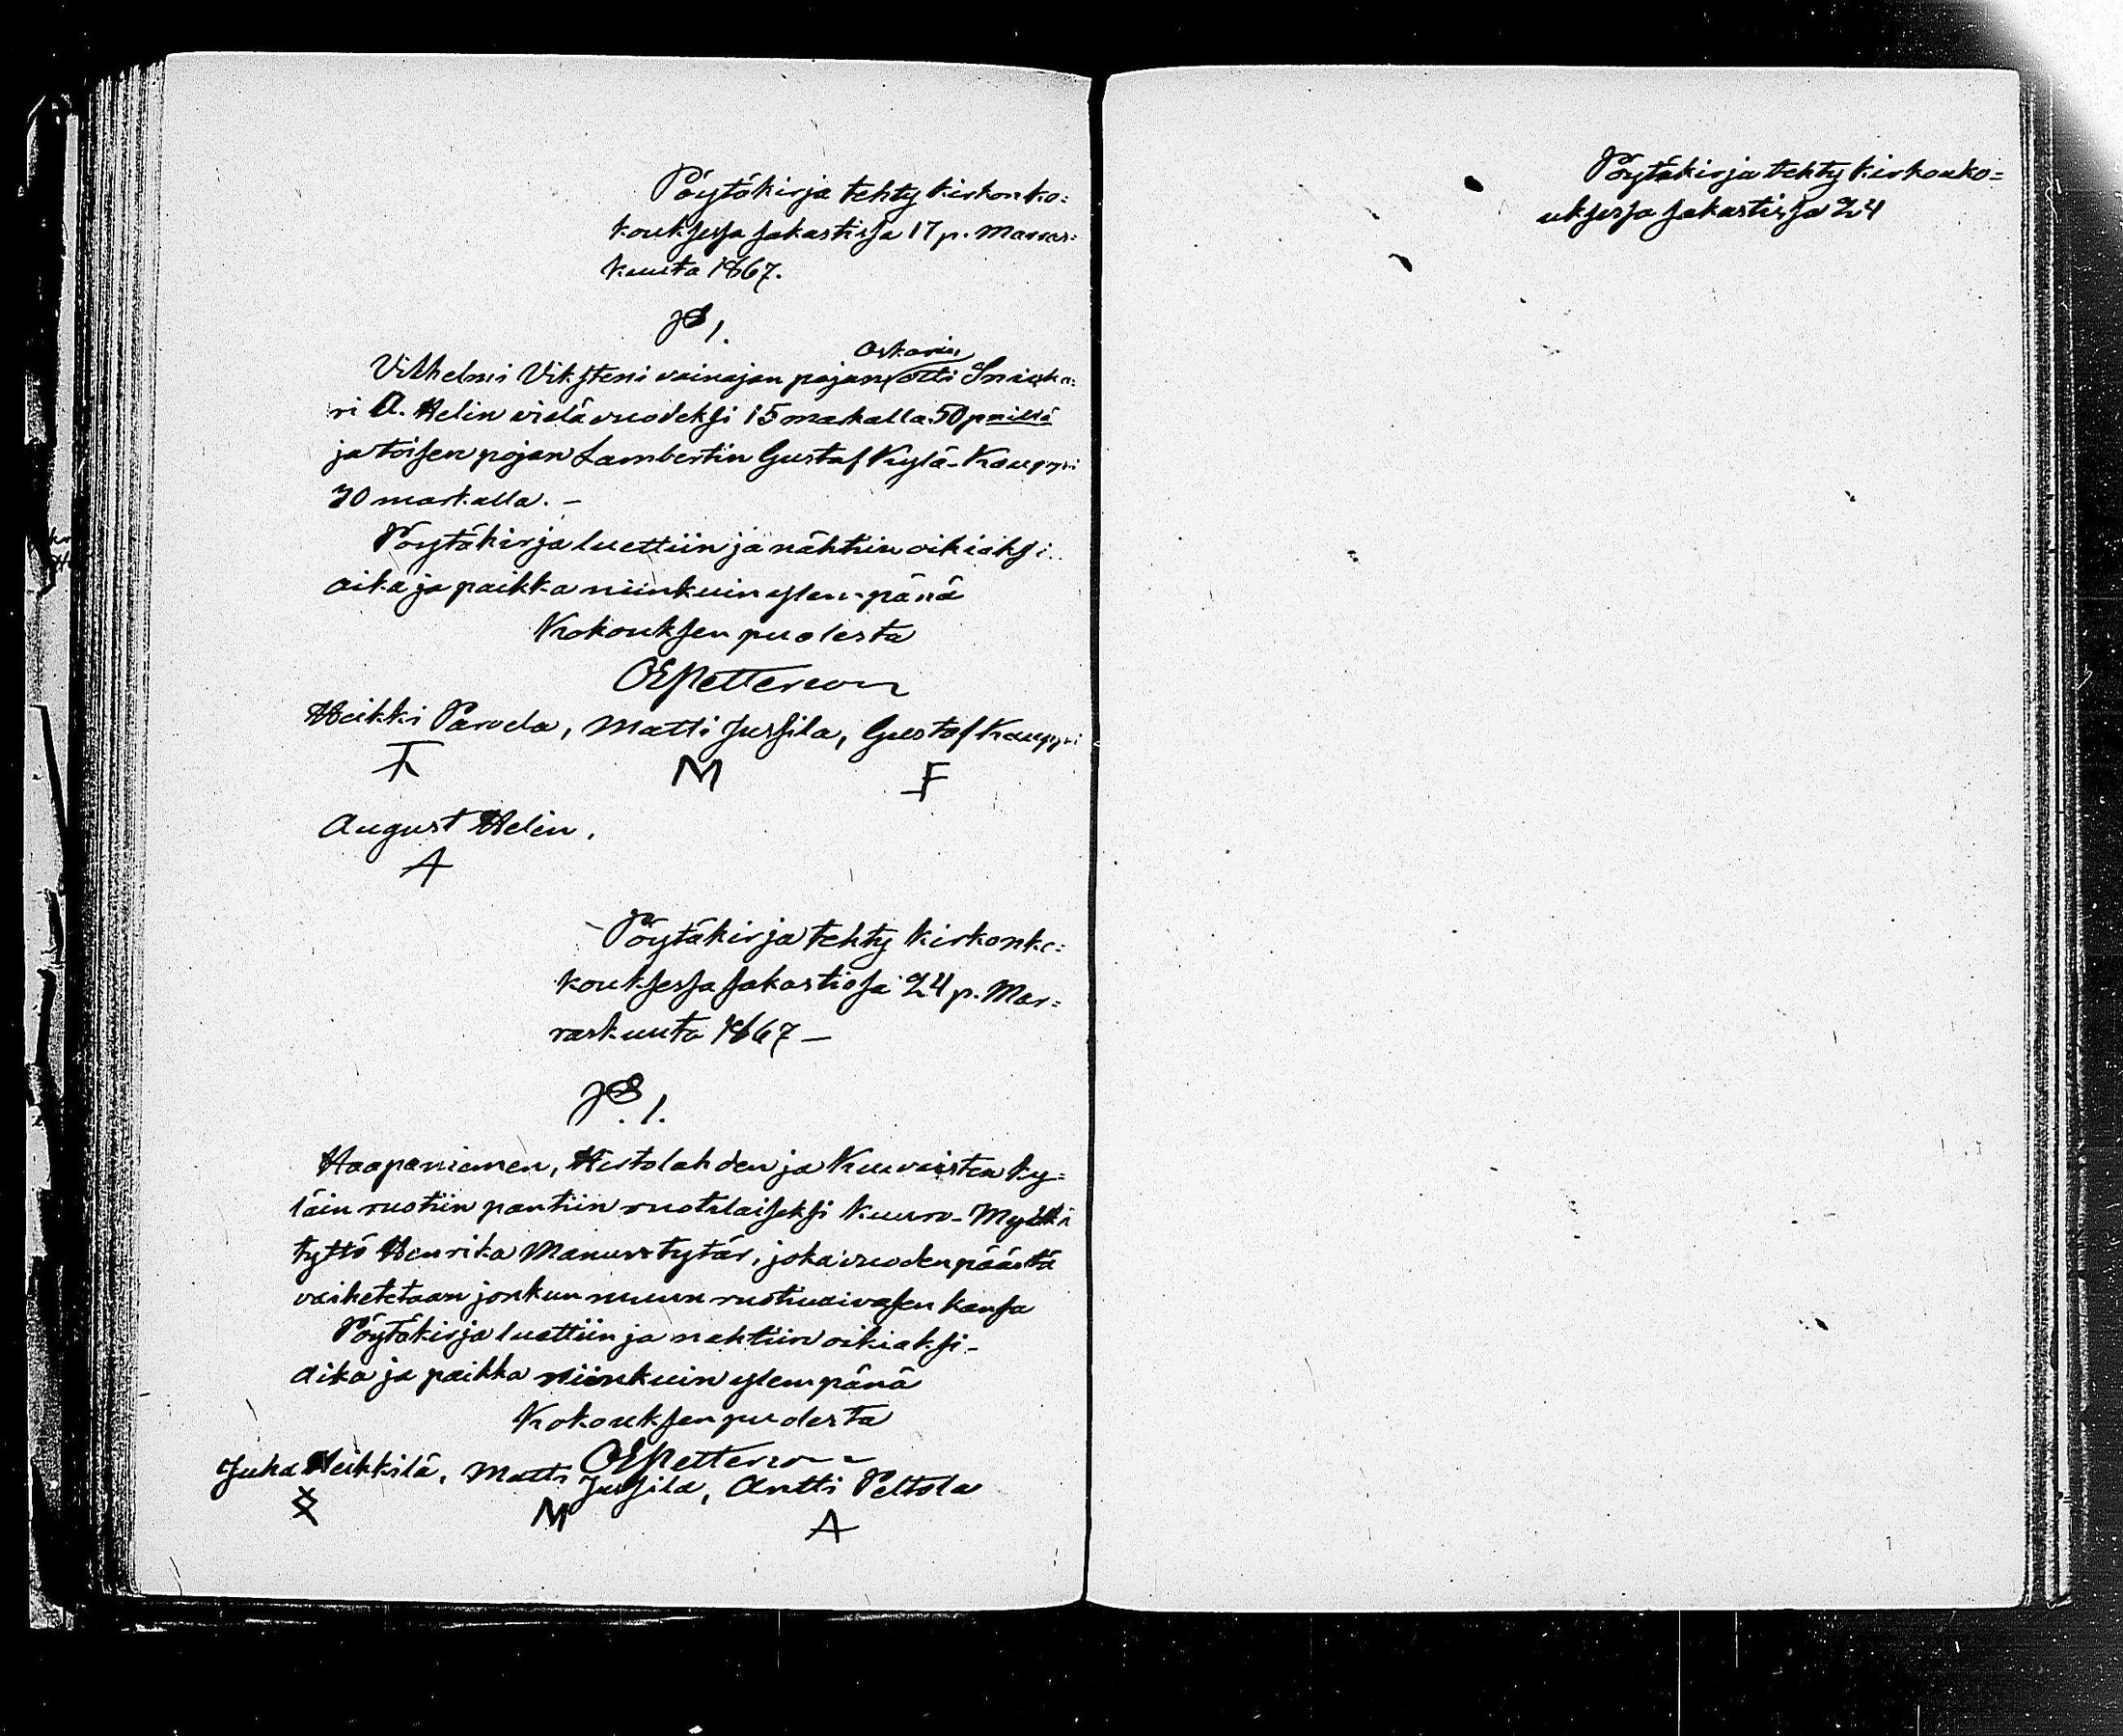 Pöytäkirja tehty kirkonko=
kouksessa sakastissa 17 p. Marras=
kuuta 1867.
§ 1.
Vilhelmi Viksteni vainajan pojan Oskarin otti Snicka=
ri A. Helin vielä vuodeksi 15 markalla 50 pnillä
ja toisen pojan Lambertin Gustaf Kylä-Kauppi
70 markalla. –
Pöytäkirja luettiin ja nähtiin oikiaksi.
aika ja paikka niinkuin ylempänä
Kokouksen puolesta
OEPetterson
Heikki Parvela, Matti Jussila, Gustaf Kauppi
M F
August Helin.
A
Pöytäkirja tehty kirkonko=
kouksessa sakastissa 24 p. Mar=
raskuuta 1867 –
§. 1.
Haapaniemen, Hirtolahden ja Kuuvaisten ky=
läin ruotiin pantiin ruotilaiseksi kuuro-Mykkä
tyttö Henrika Manuertytär, joka vuoden päästä
vaihetetaan jonkun muun ruotivaivasen kansa
Pöytäkirja luettiin ja nähtiin oikiaksi –
aika ja paikka niinkuin ylempänä
Kokouksen puolesta
OEPetterson
Juha Heikkilä, Matti Jussila, Antti Peltola
M A
Pöytäkirja tehty kirkonko=
uksessa sakastissa 24